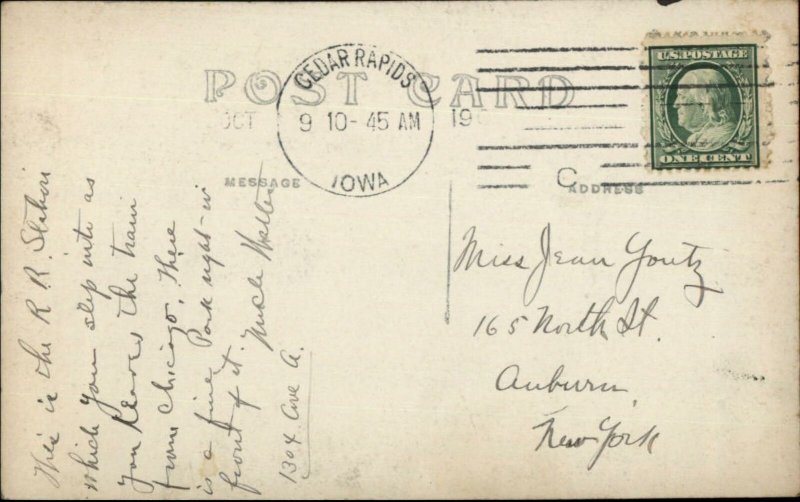 POST CARD
CEDAR RAPIDS
OCT
9 10-45 AM
19
IOWA
U.S. POSTAGE
ONE CENT
C
MESSAGE
ADDRESS
This is the R R. Station
which you step into as
you leaves the train
from Chicago, There
is a fine Park right in
front of it. Uncle Walter
1304 Ave A.
Miss Jean Yontz
165 North St.
Auburn,
New York